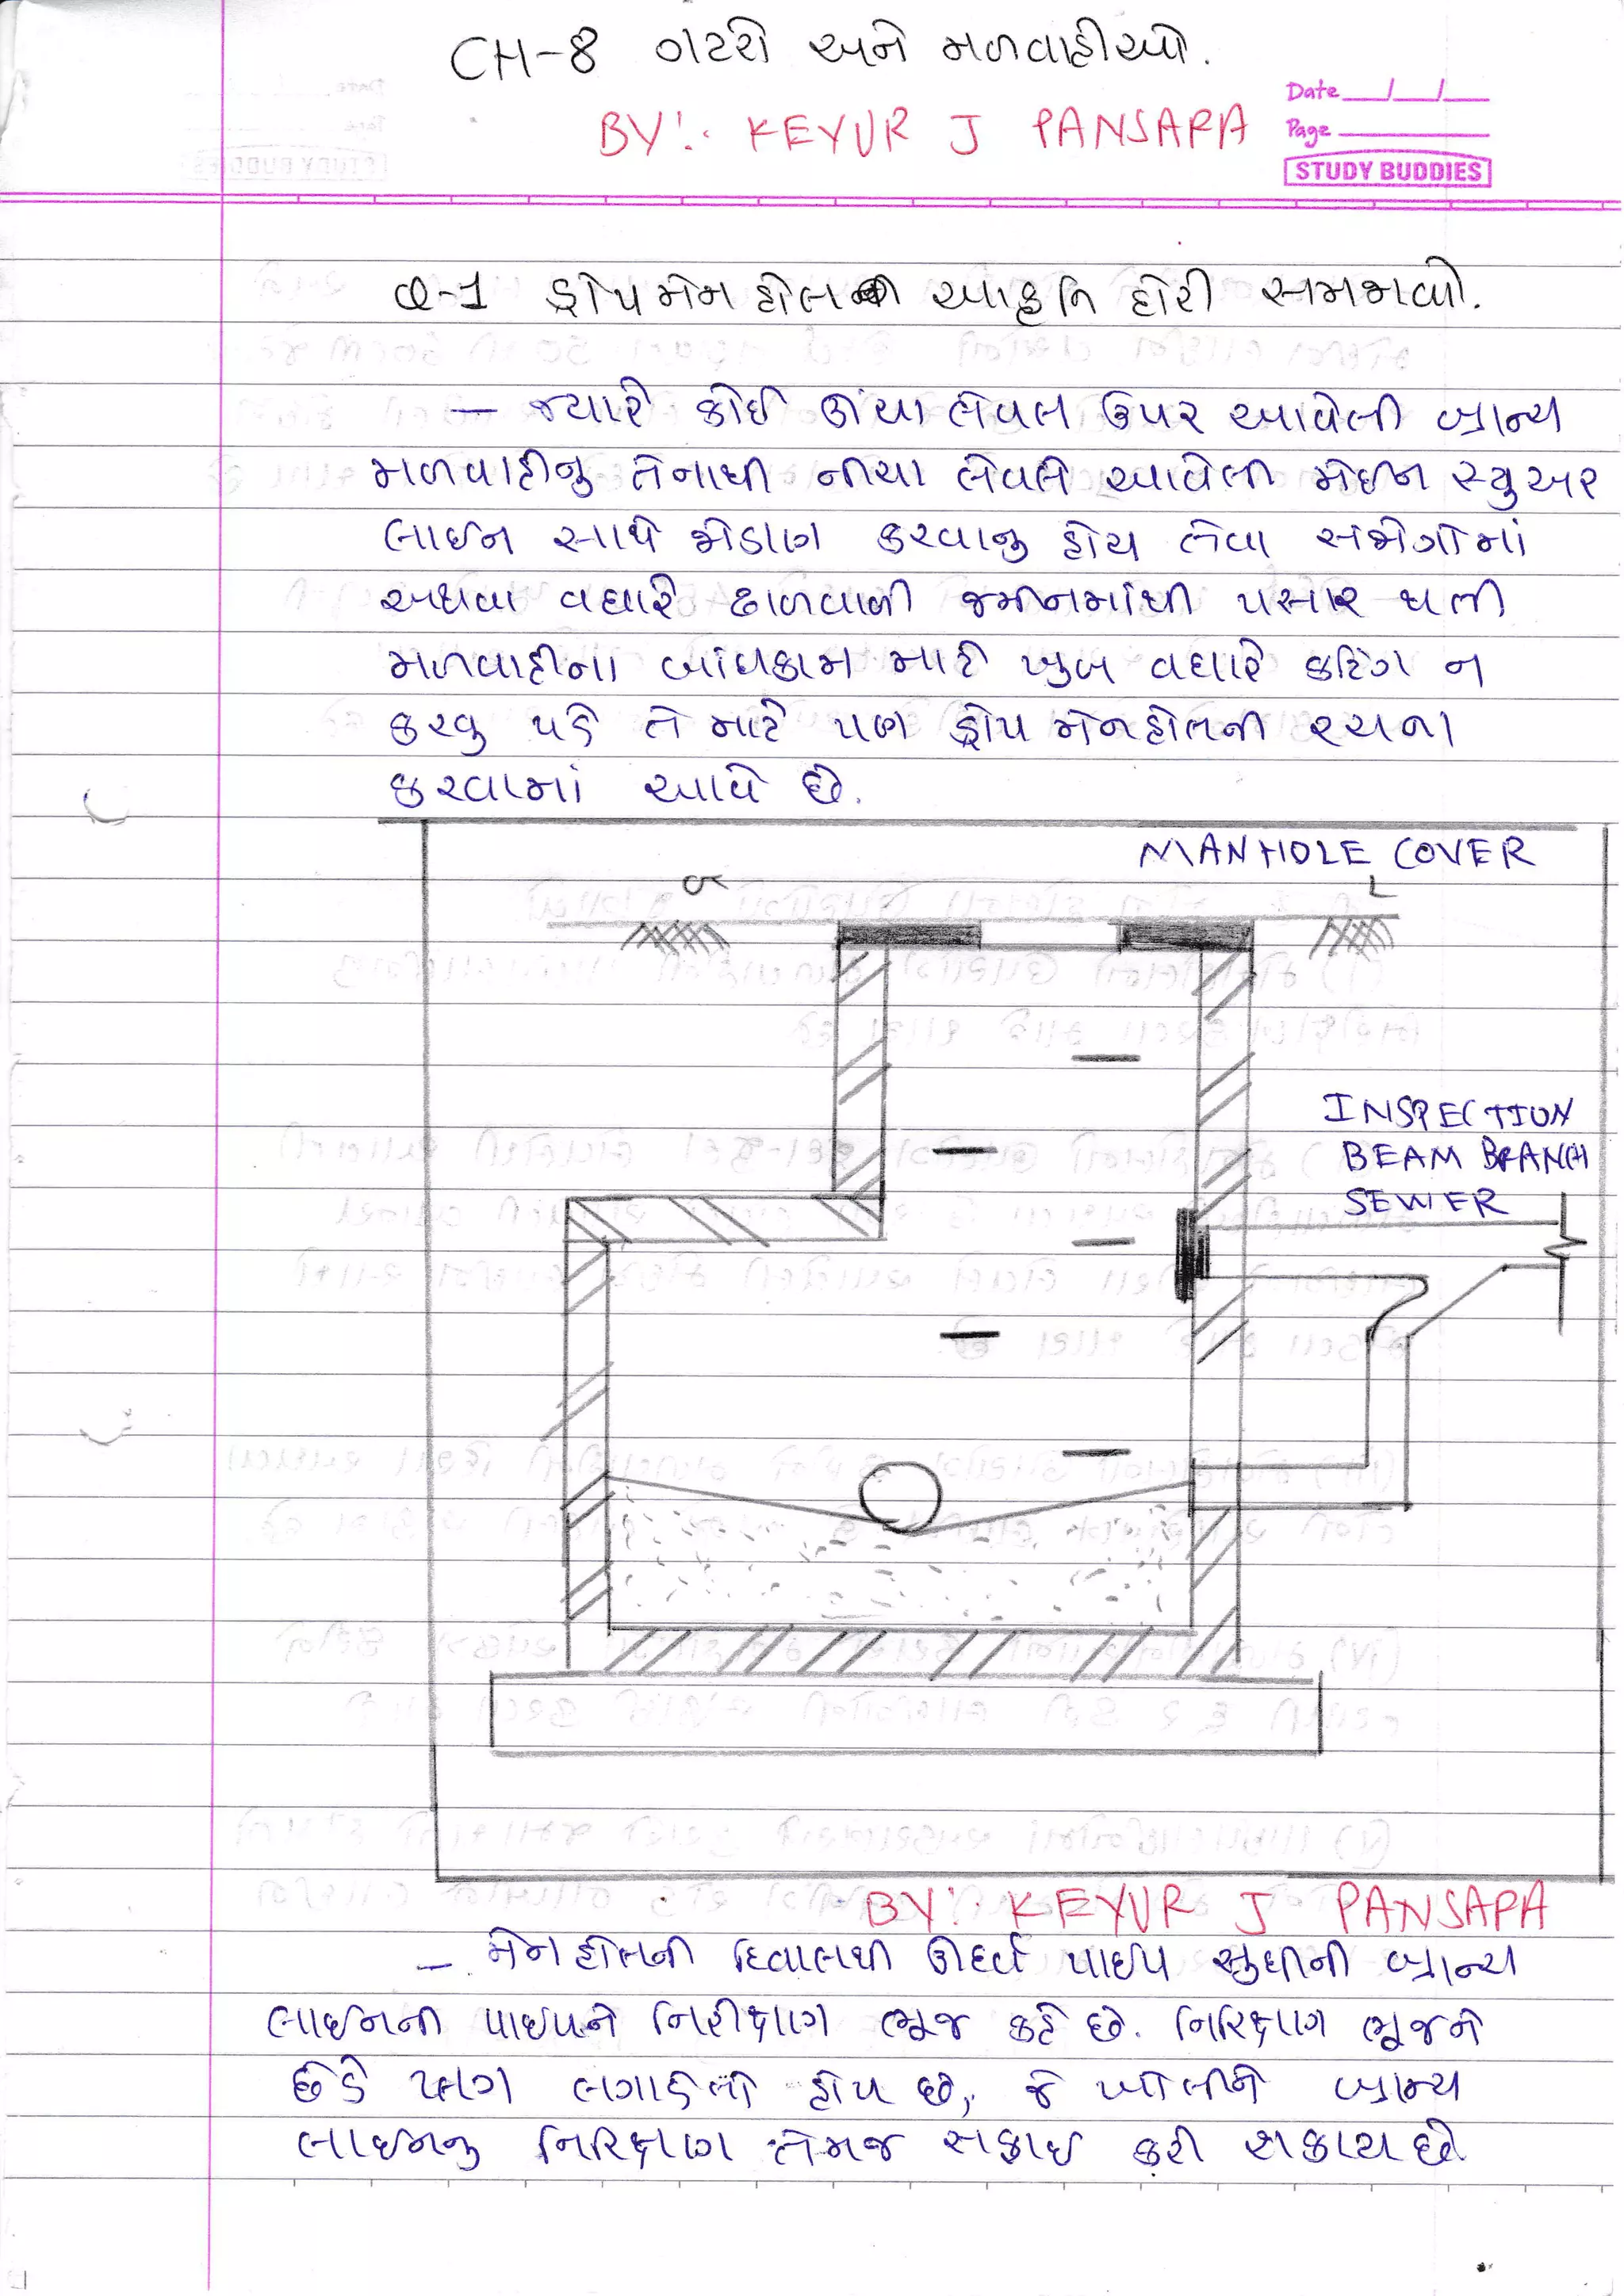 CH-8 ગટરો અને મળવાહીઓ.
BY:- KEYUR J PANSARA
Date / /
Page
STUDY BUDDIES
Q-1 ડ્રોપ મેન હોલની આકૃતિ દોરી સમજાવો.
– જ્યારે કોઈ ઊંચા લેવલ ઉપર આવેલી બ્રાન્ચ
મળવાહીનુ તેનાથી નીચા લેવલે આવેલી મેઈન સ્યુઅર
લાઈન સાથે જોડાણ કરવાનુ હોય તેવા સંજોગોમાં
અથવા વધારે ઢાળવાળી જમીનમાંથી પસાર થતી
મળવાહીના બાંધકામ માટે ખુબ વધારે કટિંગ ન
કરવુ પડે તે માટે પણ ડ્રોપ મેનહોલની રચના
કરવામાં આવે છે.
MANHOLE COVER
INSPECTION
BEAM BRANCH
SEWER
BY:- KEYUR J PANSARA
– મેન હોલની દિવાલથી ઊર્ધ્વ પાઈપ સુધીની બ્રાન્ચ
લાઈનની પાઈપને નિરીક્ષણ ભૂજ કહે છે. નિરિક્ષણ ભૂજને
છેડે પ્લગ લગાડેલો હોય છે, જે ખોલીને બ્રાન્ચ
લાઈનનુ નિરિક્ષણ તેમજ સફાઈ કરી શકાય છે.